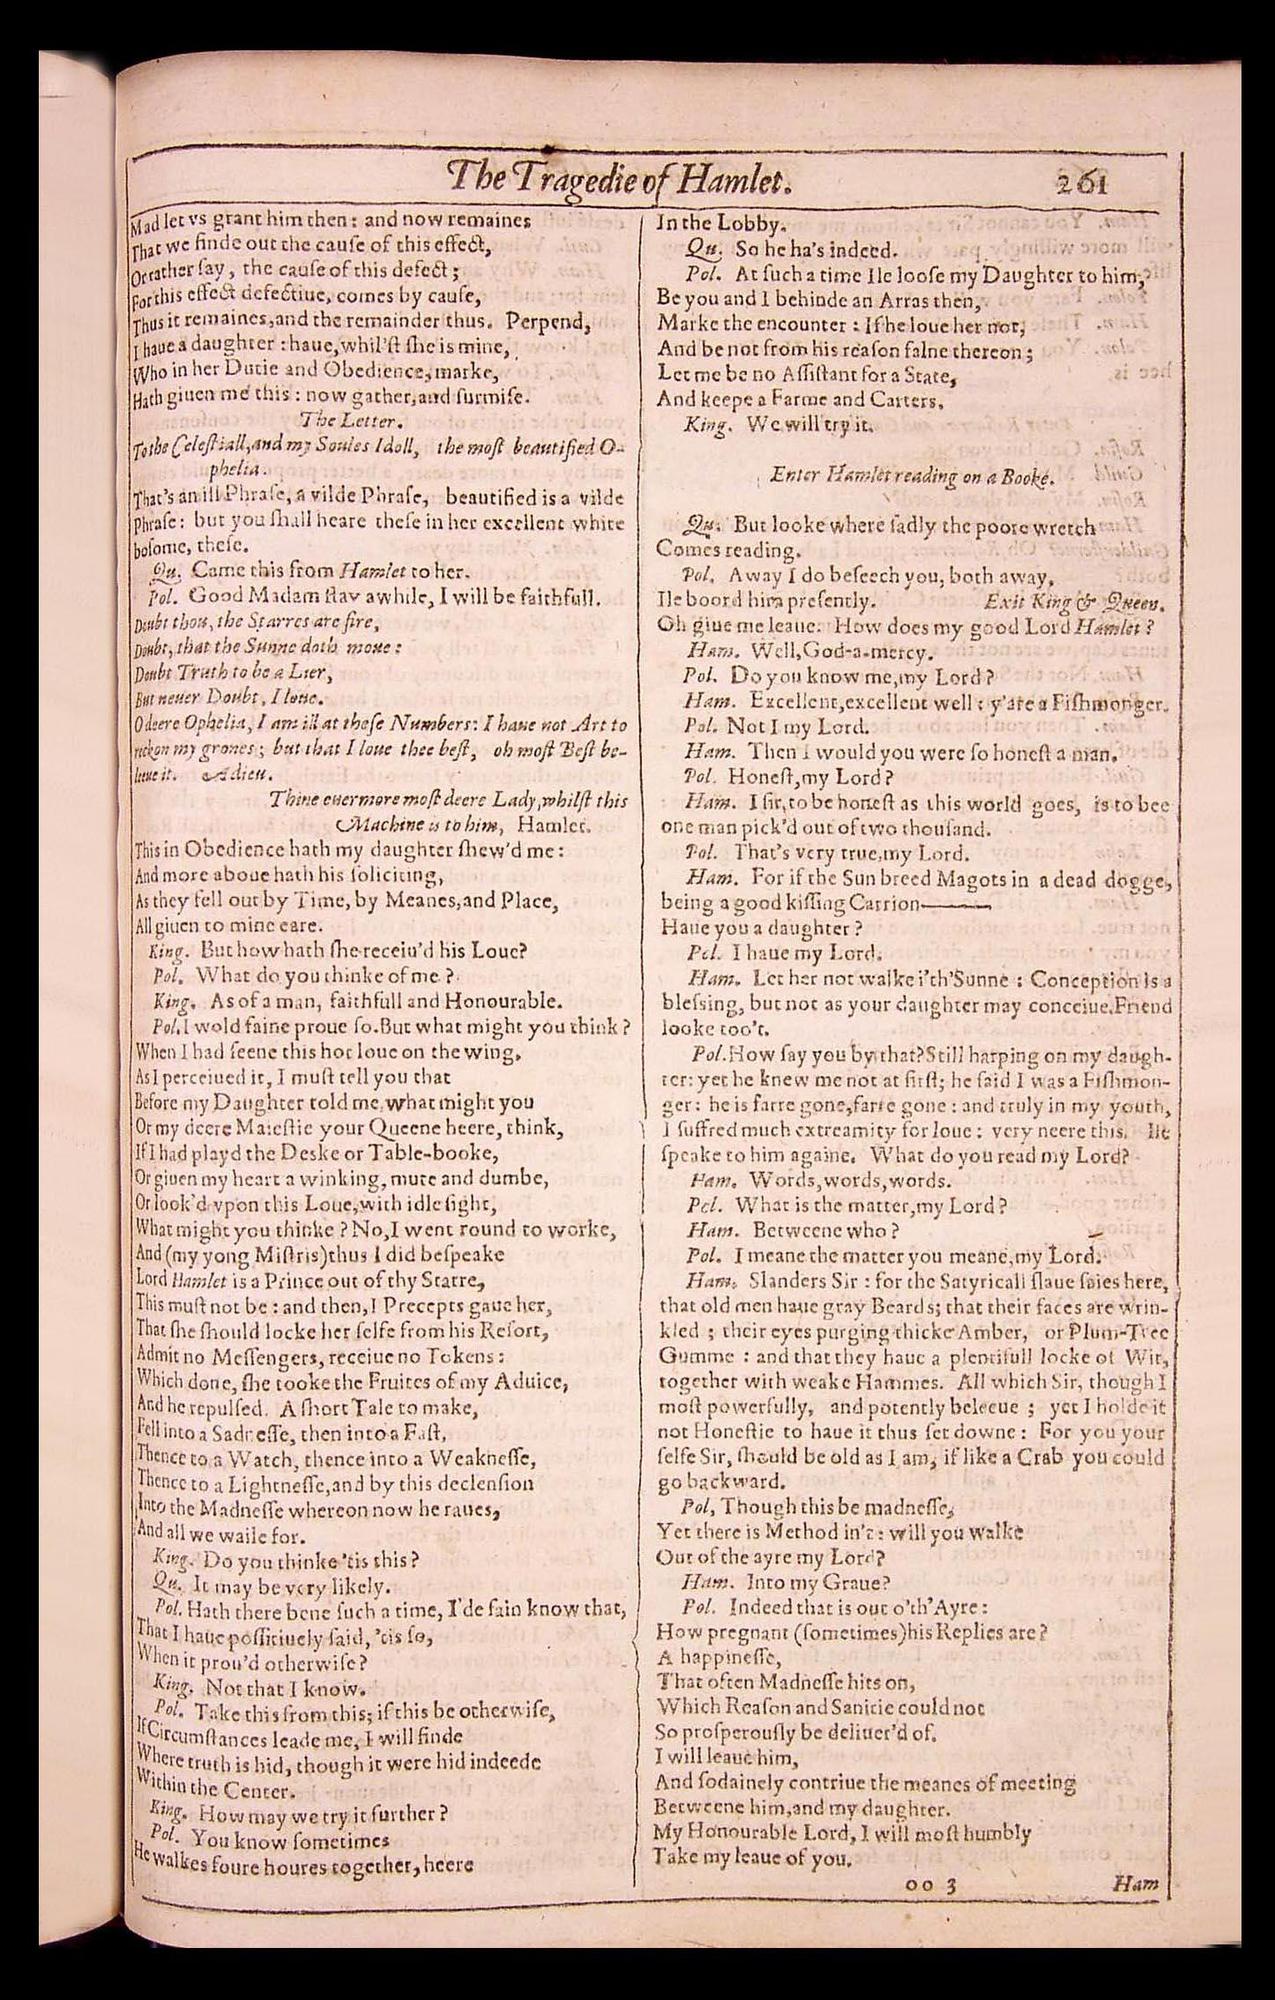 The Tragedie of Hamlet. 261
Mad let vs grant him then: and now remaines
That we finde out the cauſe of this effect,
Or rather ſay, the cauſe of this defect;
For this effect defectiue, comes by cauſe,
Thus it remaines, and the remainder thus. Perpend,
I haue a daughter: haue, whil'ſt ſhe is mine,
Who in her Dutie and Obedience, marke,
Hath giuen me this: now gather, and ſurmiſe.
The Letter.
To the Celeſtiall, and my Soules Idoll, the moſt beautified O-
phelia.
That's an ill Phraſe, a vilde Phraſe, beautified is a vilde
Phraſe: but you ſhall heare theſe in her excellent white
boſome, theſe.
Qu. Came this from Hamlet to her.
Pol. Good Madam ſtay awhile, I will be faithfull.
Doubt thou, the Starres are fire,
Doubt, that the Sunne doth moue:
Doubt Truth to be a Lier,
But neuer Doubt, I loue.
O deere Ophelia, I am ill at theſe Numbers: I haue not Art to
reckon my grones; but that I loue thee beſt, oh moſt Beſt be-
leeue it. Adieu.
Thine euermore moſt deere Lady, whilſt this
Machine is to him, Hamlet.
This in Obedience hath my daughter ſhew'd me:
And more aboue hath his ſoliciting,
As they fell out by Time, by Meanes, and Place,
All giuen to mine eare.
King. But how hath ſhe receiu'd his Loue?
Pol. What do you thinke of me?
King. As of a man, faithfull and Honourable.
Pol. I wold faine proue ſo. But what might you think?
When I had ſeene this hot loue on the wing,
As I perceiued it, I muſt tell you that
Before my Daughter told me, what might you
Or my deere Maieſtie your Queene heere, think,
If I had playd the Deske or Table-booke,
Or giuen my heart a winking, mute and dumbe,
Or look'd vpon this Loue, with idle ſight,
What might you thinke? No, I went round to worke,
And (my yong Miſtris) thus I did beſpeake
Lord Hamlet is a Prince out of thy Starre,
This muſt not be: and then, I Precepts gaue her,
That ſhe ſhould locke her ſelfe from his Reſort,
Admit no Meſſengers, receiue no Tokens:
Which done, ſhe tooke the Fruites of my Aduice,
And he repulſed. A ſhort Tale to make,
Fell into a Sadneſſe, then into a Faſt,
Thence to a Watch, thence into a Weakneſſe,
Thence to a Lightneſſe, and by this declenſion
Into the Madneſſe whereon now he raues,
And all we waile for.
King. Do you thinke 'tis this?
Qu. It may be very likely.
Pol. Hath there bene ſuch a time, I'de fain know that,
That I haue poſſitiuely ſaid, 'tis ſo,
When it prou'd otherwiſe?
King. Not that I know.
Pol. Take this from this; if this be otherwiſe,
If Circumſtances leade me, I will finde
Where truth is hid, though it were hid indeede
Within the Center.
King. How may we try it further?
Pol. You know ſometimes
He walkes foure houres together, heere
In the Lobby.
Qu. So he ha's indeed.
Pol. At ſuch a time Ile looſe my Daughter to him,
Be you and I behinde an Arras then,
Marke the encounter: If he loue her not,
And be not from his reaſon falne thereon;
Let me be no Aſſiſtant for a State,
And keepe a Farme and Carters.
King. We will try it.
Enter Hamlet reading on a Booke.
Qu. But looke where ſadly the poore wretch
Comes reading.
Pol. Away I do beſeech you, both away,
Ile boord him preſently. Exit King & Queen.
Oh giue me leaue. How does my good Lord Hamlet?
Ham. Well, God-a-mercy.
Pol. Do you know me, my Lord?
Ham. Excellent, excellent well: y'are a Fiſhmonger.
Pol. Not I my Lord.
Ham. Then I would you were ſo honeſt a man.
Pol. Honeſt, my Lord?
Ham. I ſir, to be honeſt as this world goes, is to bee
one man pick'd out of two thouſand.
Pol. That's very true, my Lord.
Ham. For if the Sun breed Magots in a dead dogge,
being a good kiſſing Carrion———
Haue you a daughter?
Pol. I haue my Lord.
Ham. Let her not walke i'th'Sunne: Conception is a
bleſsing, but not as your daughter may conceiue. Friend
looke too't.
Pol. How ſay you by that? Still harping on my daugh-
ter: yet he knew me not at firſt; he ſaid I was a Fiſhmon-
ger: he is farre gone, farre gone: and truly in my youth,
I ſuffred much extreamity for loue: very neere this. Ile
ſpeake to him againe. What do you read my Lord?
Ham. Words, words, words.
Pol. What is the matter, my Lord?
Ham. Betweene who?
Pol. I meane the matter you meane, my Lord.
Ham. Slanders Sir: for the Satyricall ſlaue ſaies here,
that old men haue gray Beards; that their faces are wrin-
kled; their eyes purging thicke Amber, or Plum-Tree
Gumme: and that they haue a plentifull locke of Wit,
together with weake Hammes. All which Sir, though I
moſt powerfully, and potently beleeue; yet I holde it
not Honeſtie to haue it thus ſet downe: For you your
ſelfe Sir, ſhould be old as I am, if like a Crab you could
go backward.
Pol, Though this be madneſſe,
Yet there is Method in't: will you walke
Out of the ayre my Lord?
Ham. Into my Graue?
Pol. Indeed that is out o'th'Ayre:
How pregnant (ſometimes) his Replies are?
A happineſſe,
That often Madneſſe hits on,
Which Reaſon and Sanitie could not
So proſperouſly be deliuer'd of.
I will leaue him,
And ſodainely contriue the meanes of meeting
Betweene him, and my daughter.
My Honourable Lord, I will moſt humbly
Take my leaue of you.
oo 3 Ham